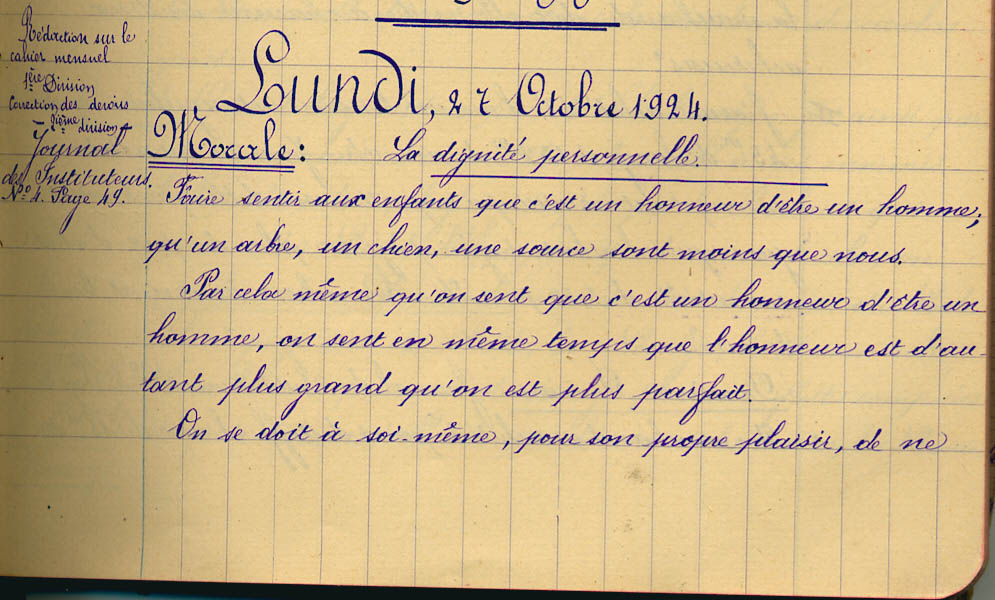 Rédaction sur le
cahier mensuel
1ère Division
Correction des devoirs
2ième division
Journal
des Instituteurs.
N° 4. Page 49.
Lundi, 27 Octobre 1924.
Morale: La dignité personnelle.
Faire sentir aux enfants que c'est un honneur d'être un homme;
qu'un arbre, un chien, une source sont moins que nous.
Par cela même qu'on sent que c'est un honneur d'être un
homme, on sent en même temps que l'honneur est d'au-
tant plus grand qu'on est plus parfait.
On se doit à soi-même, pour son propre plaisir, de ne